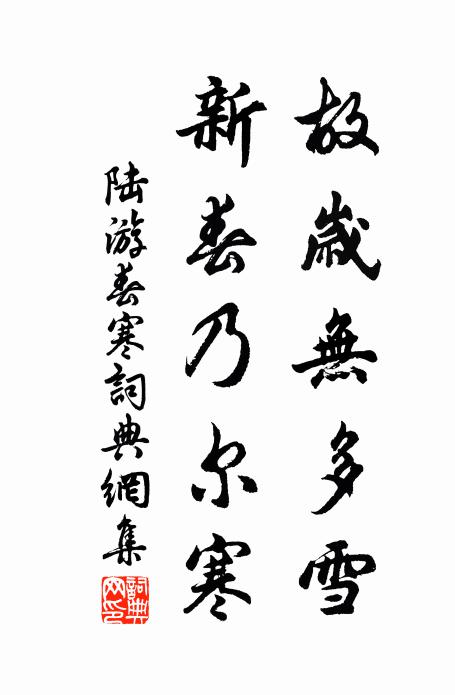 故歲無多雪
新春乃尔寒
陆游春寒詞典網集
詞典网印